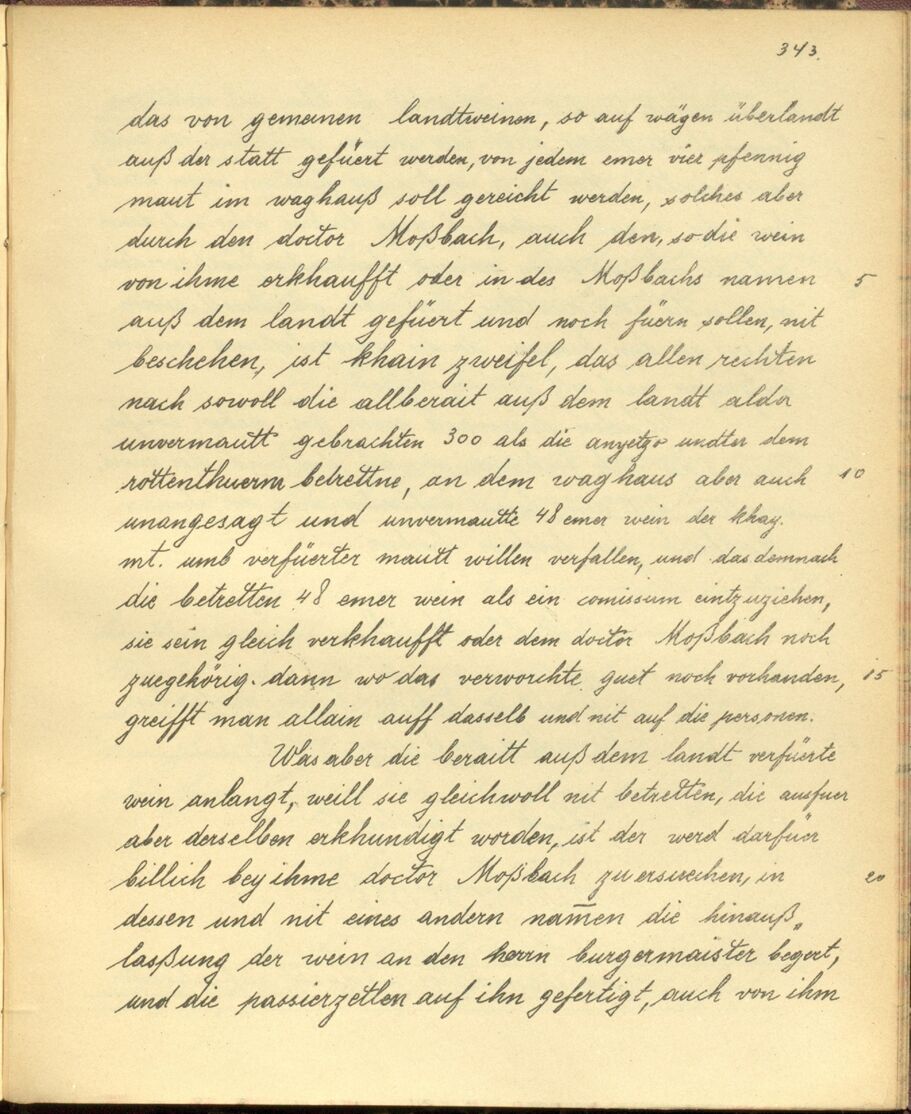 343.
das von gemeinen landtweinen, so auf wägen überlandt
auß der statt gefüert werden, von jedem emer vier pfennig
maut im waghauß soll gereicht werden, solches aber
durch den doctor Moßbach, auch den, so die wein
von ihme erkhaufft oder in des Moßbachs namen 5
auß dem landt gefüert und noch füern sollen, nit
beschehen, ist khain zweifel, das allen rechten
nach sowoll die allberait auß dem landt alda
unvermautt gebrachten 300 als die anyetzo undter dem
rottenthuerm betrettne, an dem waghaus aber auch 10
unangesagt und unvermautte 48 emer wein der khay.
mt. umb verfüerter mautt willen verfallen, und das demnach
die betretten 48 emer wein als ein comissum eintzuziehen,
sie sein gleich verkhaufft oder dem doctor Moßbach noch
zuegehörig. dann wo das verworchte guet noch vorhanden, 15
greifft man allain auff dasselb und nit auf die personen.
Was aber die beraitt auß dem landt verfüerte
wein anlangt, weill sie gleichwoll nit betretten, die ausfuer
aber derselben erkhundigt worden, ist der werd darfüer
billich bey ihme doctor Moßbach zu ersuechen, in 20
dessen und nit eines andern nam̅en die hinauß„
lasßung der wein an den herrn burgermaister begert,
und die passierzetlen auf ihn gefertigt, auch von ihm